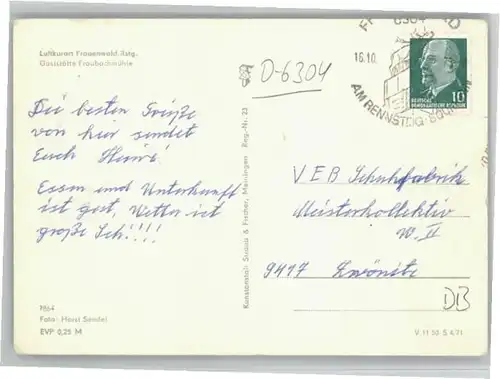 Luftkurort Frauenwald Rstg.
Gaststätte Fraubachmühle
Die besten Grüße
von hier sendet
Euch Heinz!
Essen und Unterkunft
ist gut, Wetter ist
große Sch!!!!
7864
Foto: Horst Sandel
EVP 0,25 M
Reg.-Nr. 23
D-6304
6304
16.10.
AM RENNSTEIG
DEUTSCHE
DEMOKRATISCHE REPUBLIK
10
VEB Schuhfabrik
Meisterkollektiv
W. II
9417 Zwönitz
DB
V 11 50 S 4/71